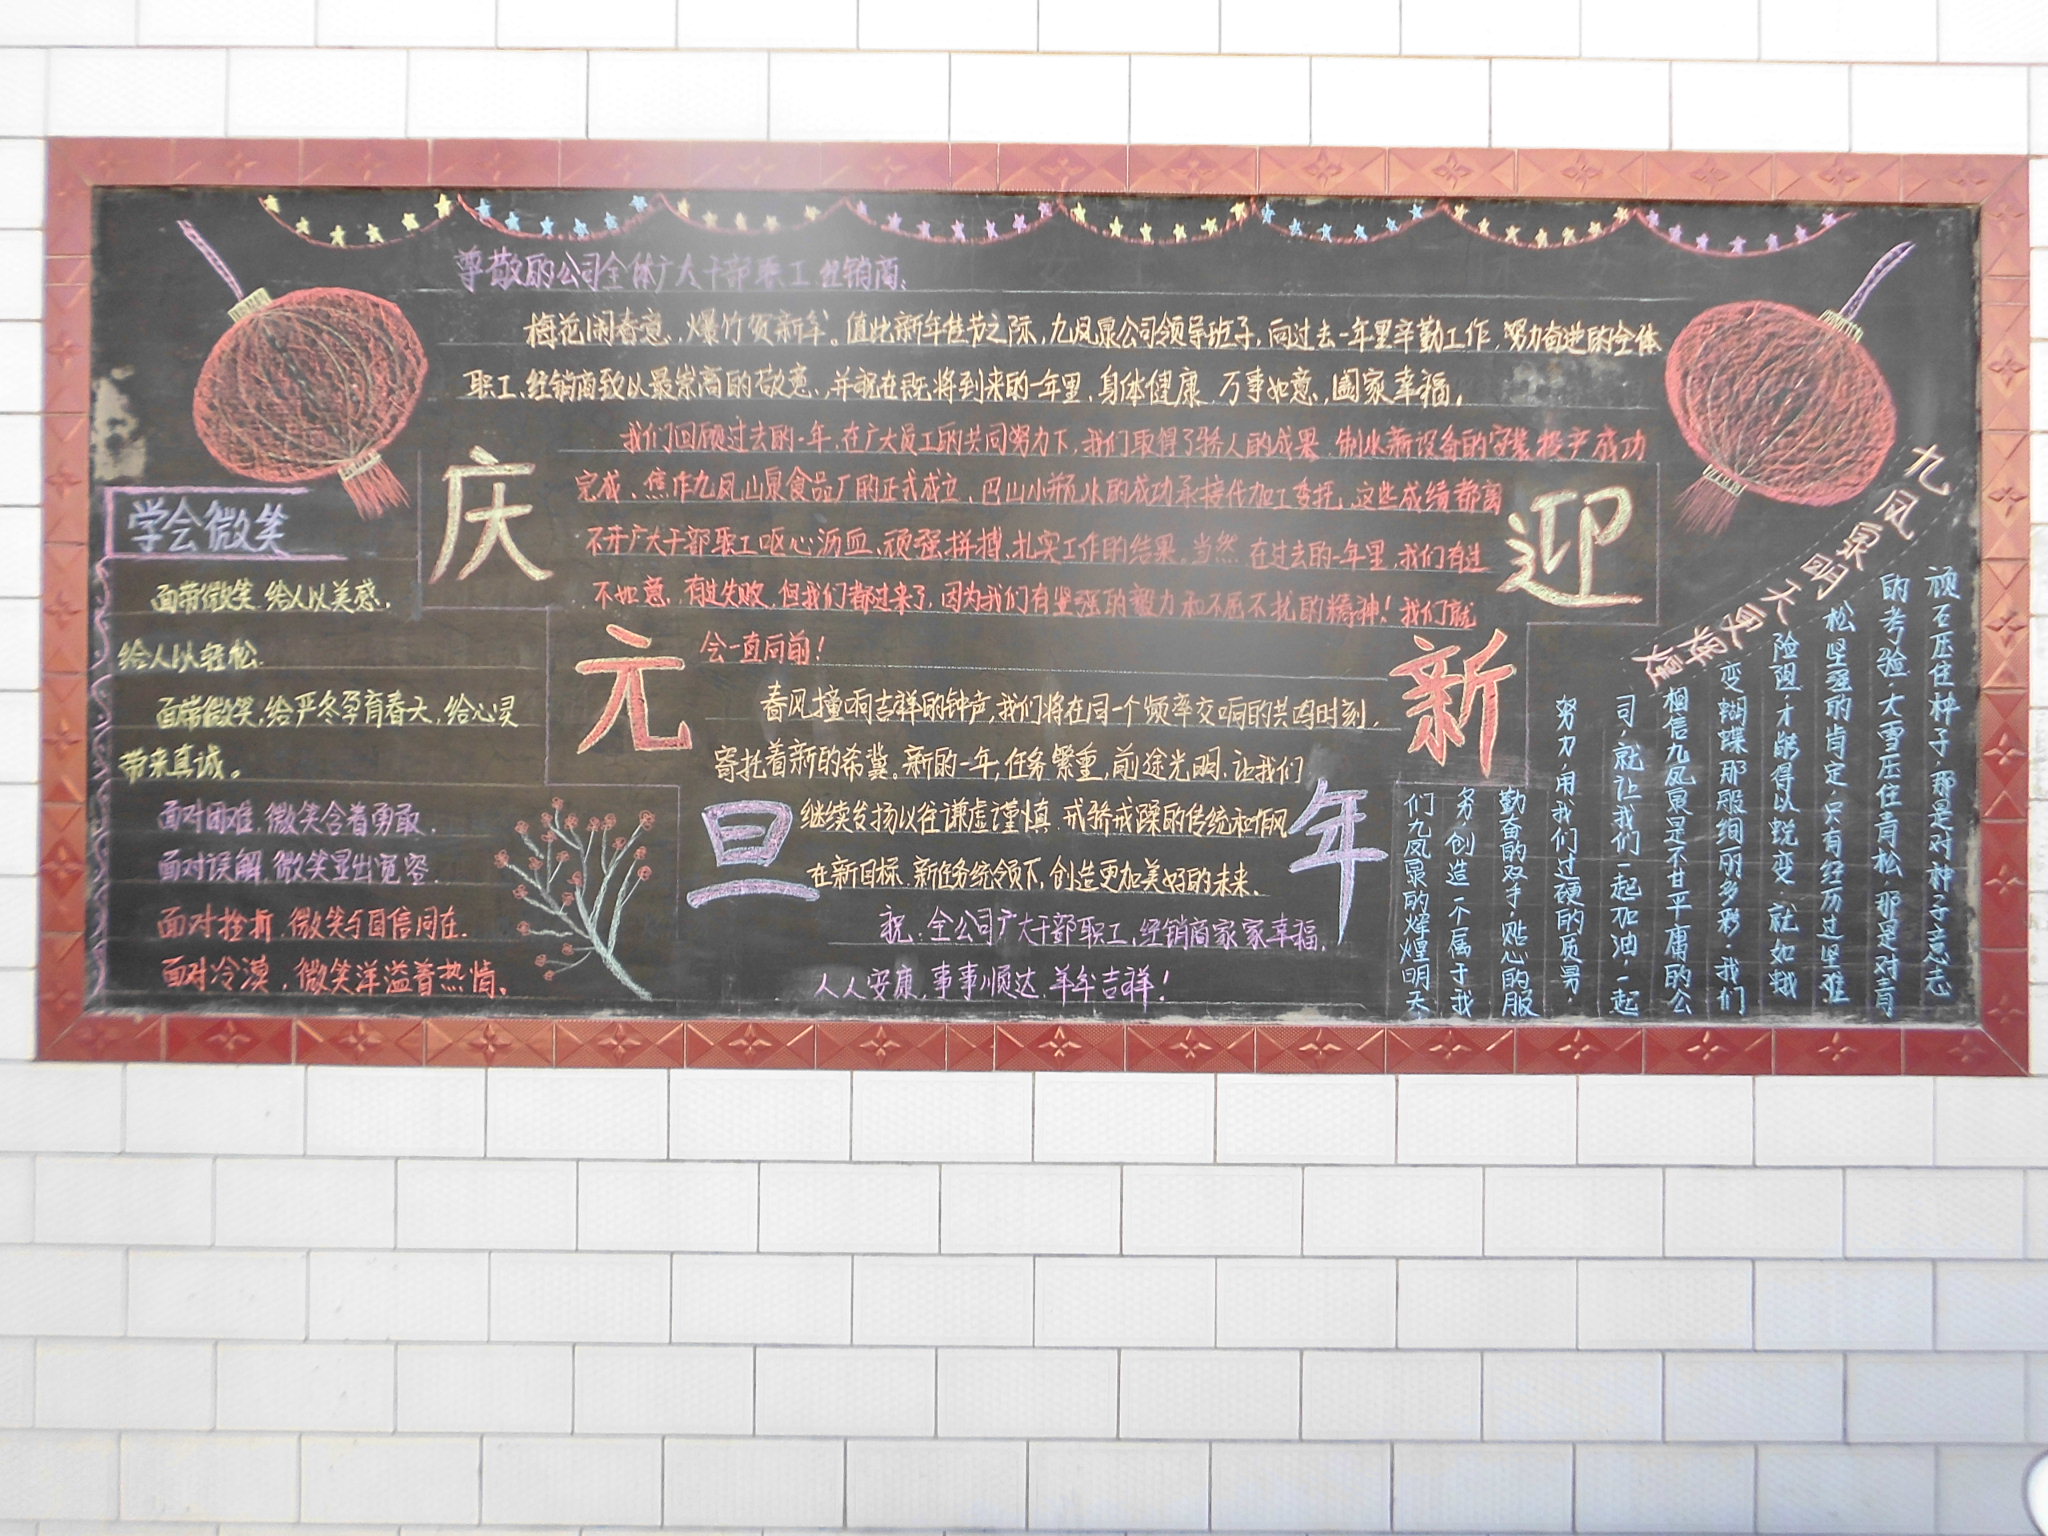 庆元旦
迎新年
尊敬的公司全体广大干部职工、经销商：
梅花闹春意，爆竹贺新年。值此新年佳节之际，九凤泉公司领导班子，向过去一年里辛勤工作，努力奋进的全体
职工、经销商致以最崇高的敬意，并祝在既将到来的一年里，身体健康，万事如意，阖家幸福。
我们回顾过去的一年，在广大员工的共同努力下，我们取得了骄人的成果，制水新设备的安装投产成功
完成、焦作九凤山泉食品厂的正式成立、巴山小瓶水的成功承接代加工委托，这些成绩都离
不开广大干部职工呕心沥血、顽强拼搏、扎实工作的结果。当然，在过去的一年里，我们有过
不如意，有过失败，但我们都过来了，因为我们有坚强的毅力和不屈不扰的精神！我们就
会一直向前！
春风撞响吉祥的钟声，我们将在同一个频率交响的共鸣时刻，
寄托着新的希冀。新的一年，任务繁重，前途光明，让我们
继续发扬以往谦虚谨慎，戒骄戒躁的传统和作风
在新目标、新任务统领下，创造更加美好的未来。
祝：全公司广大干部职工、经销商家家幸福，
人人安康，事事顺达，羊年吉祥！
学会微笑
面带微笑，给人以美感，
给人以轻松。
面带微笑，给严冬孕育春天，给心灵
带来真诚。
面对困难，微笑含着勇敢，
面对误解，微笑显出宽容。
面对挫折，微笑与自信同在，
面对冷漠，微笑洋溢着热情。
九凤泉明天更辉煌
顽石压住种子，那是对种子意志
的考验，大雪压住青松，那是对青
松坚强的肯定，只有经历过坚难
险阻，才能得以蜕变，就如蛾
变蝴蝶那般绚丽多彩，我们
相信九凤泉是不甘平庸的公
司，就让我们一起加油，一起
努力，用我们过硬的质男，
勤奋的双手，贴心的服
务，创造一个属于我
们九凤泉的辉煌明天。